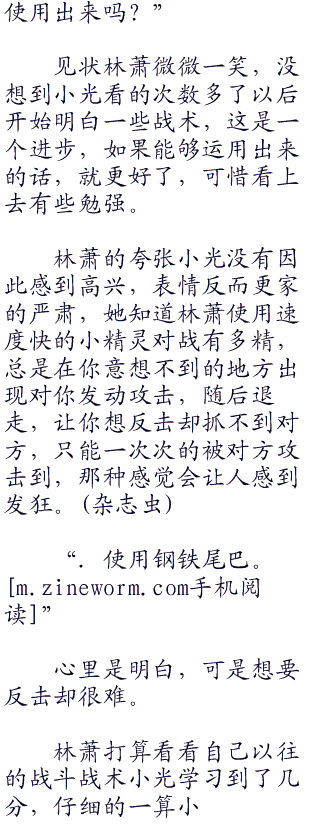 使用出来吗？”
见状林萧微微一笑，没
想到小光看的次数多了以后
开始明白一些战术，这是一
个进步，如果能够运用出来
的话，就更好了，可惜看上
去有些勉强。
林萧的夸张小光没有因
此感到高兴，表情反而更家
的严肃，她知道林萧使用速
度快的小精灵对战有多精，
总是在你意想不到的地方出
现对你发动攻击，随后退
走，让你想反击却抓不到对
方，只能一次次的被对方攻
击到，那种感觉会让人感到
发狂。(杂志虫)
“．使用钢铁尾巴。
[m.zineworm.com手机阅
读]”
心里是明白，可是想要
反击却很难。
林萧打算看看自己以往
的战斗战术小光学习到了几
分，仔细的一算小